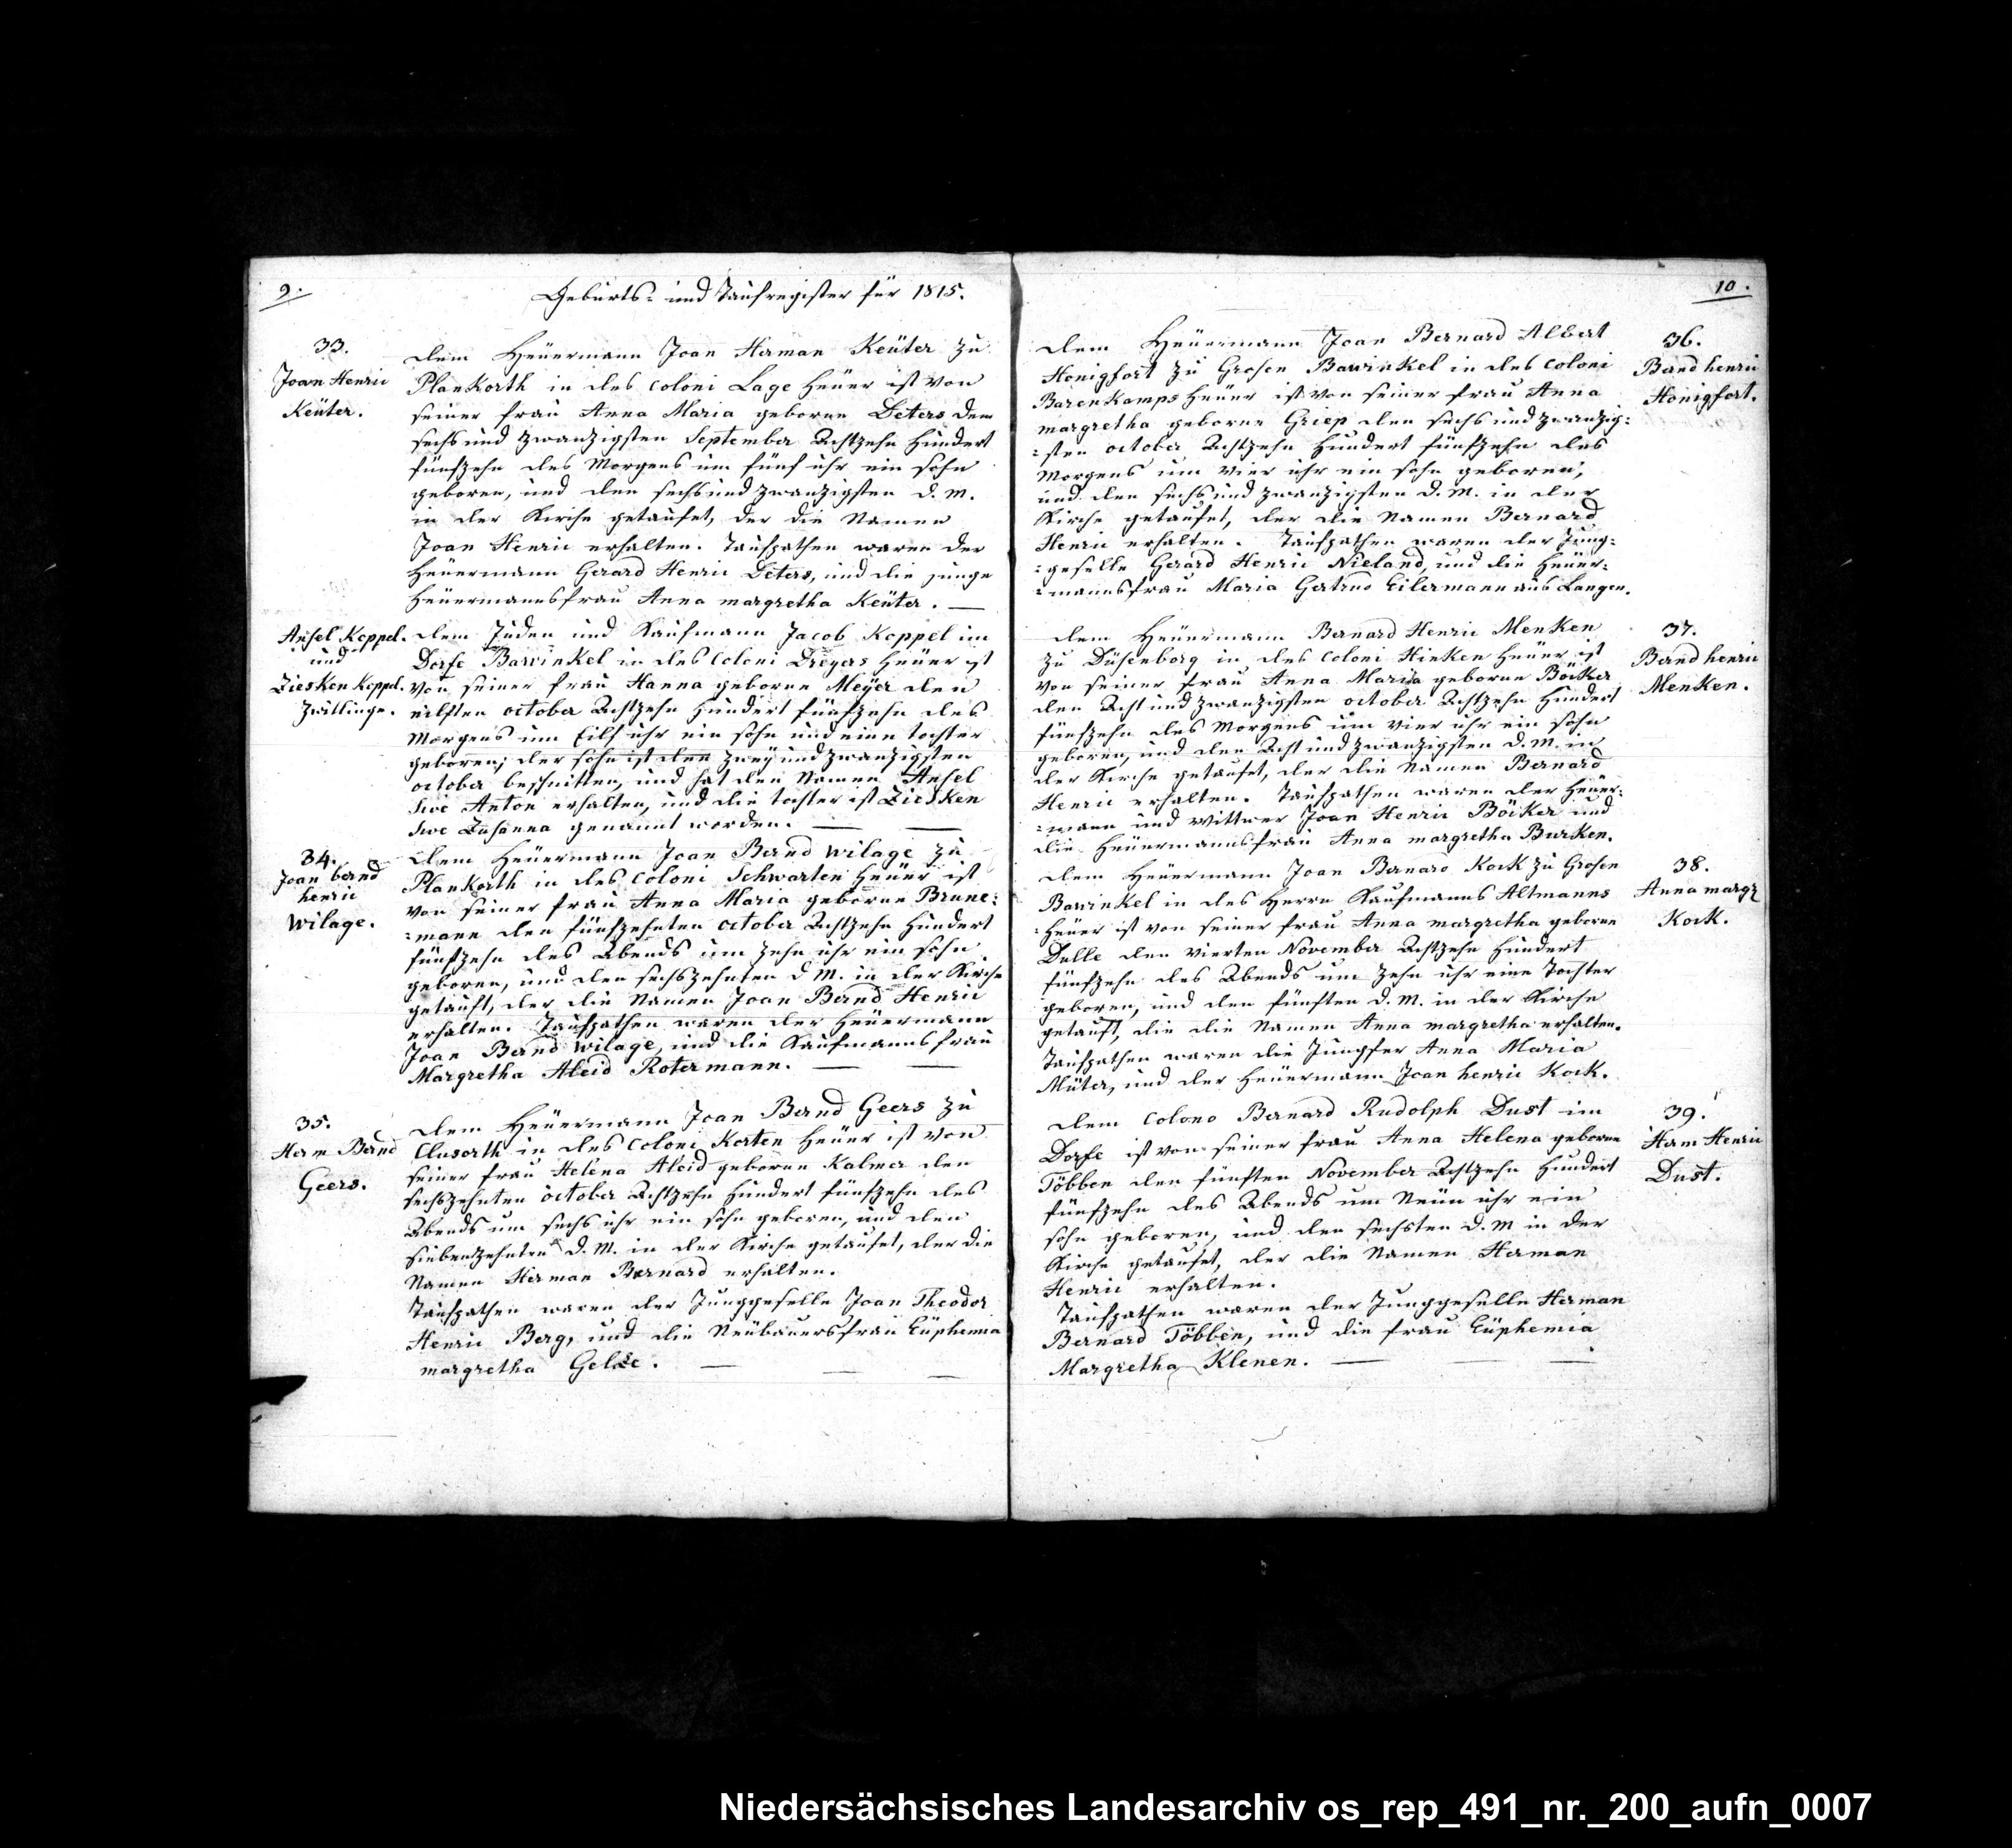 9.
Geburts- und Taufregister für 1815.
33.
Joan Henric
Keüter.
Dem Heüermann Joan Herman Keüter zu
Plankorth in des Coloni Lage Heüer ist von
seiner Frau Anna Maria geborne Deters den
sechs und zwanzigsten September Achtzehn Hundert
fünfzehn des Morgens um fünf Uhr ein Sohn
geboren, und den sechs und zwanzigsten d. M.
in der Kirche getaufet, der die Namen
Joan Henric erhalten. Taufpathen waren der
Heüermann Gerard Henric Deters, und die junge
Heüermannsfrau Anna margretha Keüter. —
Ansel Koppel.
und
Ziesken Koppel.
Zwillinge.
Dem Juden und Kaufmann Jacob Koppel im
Dorfe Bawinkel in des Coloni Dreyers Heüer ist
von seiner Frau Hanna geborne Meÿer den
eilften october Achtzehn Hundert fünfzehn des
Morgens um Eilf Uhr ein Sohn und eine Tochter
geboren; der Sohn ist den zweÿ und zwanzigsten
october beschnitten, und hat den Namen Ansel
sive Anton erhalten, und die Tochter ist Ziesken
sive Zusanna genannt worden. — —
34.
Joan bernd
henric
Wilage.
Dem Heüermann Joan Bernd Wilage zu
Plankorth in des Coloni Schwarten Heüer ist
von seiner Frau Anna Maria geborne Brune:
:mann den fünfzehnten October Achtzehn Hundert
fünfzehn des Abends um zehn Uhr ein Sohn
geboren, und den sechszehnten d M. in der Kirche
getauft, der die Namen Joan Bernd Henric
erhalten. Taufpathen waren der Heüermann
Joan Bernd Wilage, und die Kaufmannsfrau
Margretha Aleid Rotermann. — —
35.
Herm Bernd
Geers.
Dem Heüermann Joan Bernd Geers zu
Clusorth in des Coloni Korten Heüer ist von
seiner Frau Helena Aleid geborne Kalmer den
sechszehnten october Achtzehn Hundert fünfzehn des
Abends um sechs Uhr ein Sohn geboren, und den
siebenzehnten d. M. in der Kirche getaufet, der die
Namen Herman Bernard erhalten.
Taufpathen waren der Junggeselle Joan Theodor
Henric Berg, und die Neübauersfrau Eüphemia
margretha — — —
10.
Dem Heüermann Joan Bernard Albert
Honigfort zu Grosen Bawinkel in des Coloni
Barenkamps Heüer ist von seiner Frau Anna
margretha geborne Griep den sechs und zwanzig:
:sten october Achtzehn Hundert fünfzehn des
Morgens um vier Uhr ein Sohn geboren,
und den sechs und zwanzigsten d. M. in der
Kirche getaufet, der die Namen Bernard
Henric erhalten. Taufpathen waren der Jung:
:geselle Gerard Henric Nieland, und die Heüer:
:mannsfrau Maria Gertrud Eilermann aus Langen.
36.
Bernd henric
Honigfort.
Dem Heüermann Bernard Henric Menken
zu Düsenborg in des Coloni Hinken Heüer ist
von seiner Frau Anna Maria geborne Böcker
den Acht und zwanzigsten october Achtzehn Hundert
fünfzehn des Morgens um vier Uhr ein Sohn
geboren, und den Acht und zwanzigsten d. M. in
der Kirche getaufet, der die Namen Bernard
Henric erhalten. Taufpathen waren der Heüer:
:mann und Wittwer Joan Henric Böcker und
die Heüermannsfrau Anna margretha Burken.
37.
Bernd henric
Menken.
Dem Heüermann Joan Bernard Kock zu Grosen
Bawinkel in des Herrn Kaufmanns Altmanns
Heüer ist von seiner Frau Anna margretha geborne
Dulle den vierten November Achtzehn Hundert
fünfzehn des Abends um zehn Uhr eine Tochter
geboren, und den fünften d. M. in der Kirche
getauft, die die Namen Anna margretha erhalten.
Taufpathen waren die Jungfer Anna Maria
Müter, und der Heüermann Joan henric Kock.
38.
Anna margr
Kock.
Dem Colono Bernard Rudolph Dust im
Dorfe ist von seiner Frau Anna Helena geborne
Többen den fünften November Achtzehn Hundert
fünfzehn des Abends um Neün Uhr ein
Sohn geboren, und den sechsten d. M in der
Kirche getaufet, der die Namen Herman
Henric erhalten.
Taufpathen waren der Junggeselle Herman
Bernard Többen, und die Frau Eüphemia
Margretha Klenen. — — —
39.
Herm Henric
Dust.
Niedersächsisches Landesarchiv os_rep_491_nr._200_aufn_0007